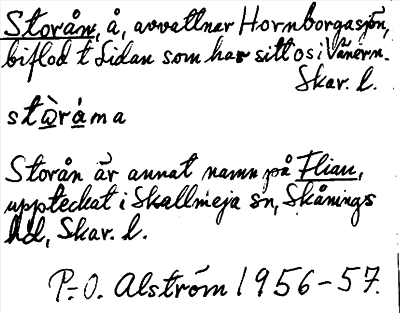 Storån, å, avvattnar Hornborgasjön,
biflod t Lidan som har sitt os i Vänern.
Skar. l.
stàráma
Storån är annat namn på Flian,
uppteckat i Skallmeja sn, Skånings
hd, Skar. l.
P.-O. Alström 1956-57.